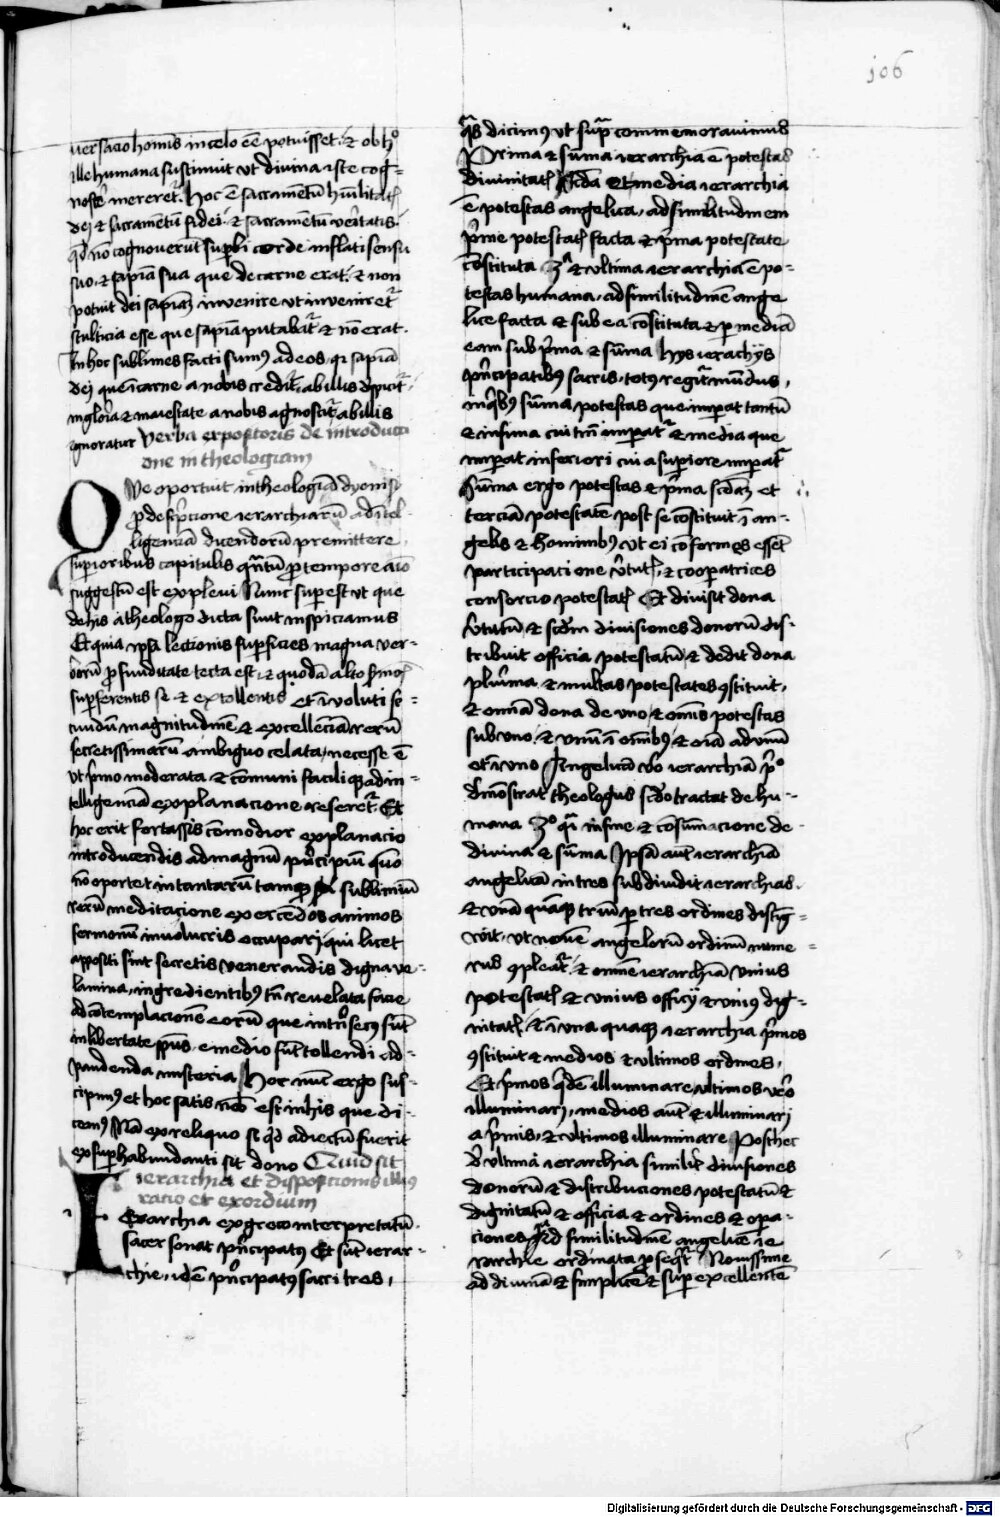 106
uersacio hominis in celo eē potuisset ⁊ ob hͦ
ille humana sustinuit vt diuina iste cog-
nosce᷑ mereret᷑. Hoc ē sacramentū hūilitatꝭ
dei ⁊ sacramentū fidei ⁊ sacramentū ueritatis
qd̄ nō cognouerūt suꝑbi corde inflati sensu
suo, ⁊ sapiā sua que de carne erat. ⁊ non
potuit dei sapiaꝫ inuenire vt inueniret᷑
stulticia esse que sapiā putabat᷑ ⁊ nō erat.
In hoc sublimes facti sumꝰ ad eos, qꝛ sapiā
dei que ī carne a nobis credit᷑, ab illis despicit᷑
in gloria ⁊ maiestate a nobis agnoscit᷑ ab illis
ignoratur Verba expositoris de introducti
one in theologiam
Ve oportuit in theologiā dyonisij
ꝓ descpͥcione ierarchiarū ad ītel-
ligenciā dicendorū premittere
superioribus capitulis quātū ꝓ tempore aīo
suggestū est expleui Nunc superest vt que
de his a theologo dicta sunt inspiciamus
Et quia ipsa lectionis suꝑficies magna ver-
borū ꝓfunditate tecta est, ⁊ quodā alto sͬmoē
suꝑferentis se ⁊ extollentis Et īuoluti se-
cundū magnitudinē ⁊ excellenciā rerū
secretissimarū ambiguo celata, necesse ē
vt pͥmo moderata ⁊ cōmuni faciliqꝫ ad in-
telligenciā explanacione reseret᷑ Et
hoc erit fortassis cōmodior explanacio
introducendis ad magnū pͥncipiū quō
nō oportet in tantarū tamqꝫ sublimiū
rerū meditacione exercēdos animos
sermonū inuolucris occupari qui licet
appositi sint secretis venerandis digna ve-
lamina, ingredientibꝰ tn̄ reuelata facie
ad cōtemplacionē eorū que intrīsecꝰ sūt
in libertate spūs e medio sūt tollendi ad-
pandenda misteria Hoc nūc ergo sus-
cipimꝰ et hoc satis nob̄ est in his que di-
cemꝰ Nā ex reliquo si qͥd adiectū fuerit
ex suꝑhabundanti sit dono Quid sit
ierarchia et disposicionis illius
racio et exordium
IErarchia ex greco interpretatū
sacer sonat pͥncipatꝰ Et sūt ierar-
chie, idē pͥncipatꝰ sacri tres,
qͣs dicimꝰ vt supͣ commemorauimus
Prima ⁊ sūma ierarchia ē potestas
diuinitatꝭ Scd̄a ⁊ media ierarchia
ē potestas angelica, ad similitudinem
pͥme potestatꝭ facta ⁊ pͥma potestate
cōstituta 3ͣ ⁊ vltima ierarchia ē po-
testas humana, ad similitudinē ange
lice facta ⁊ sub ea cōstituta ⁊ ꝑ mediā
eam sub pͥma ⁊ sūma Hys ierachijs
pͥncipatibꝰ sacris, totꝰ regit᷑ mūdus,
in qͥbꝰ sūma potestas que imꝑat tantū
⁊ infima cui tm̄ imꝑat᷑ ⁊ media que
imꝑat inferiori cui a superiore imꝑat᷑
Sūma ergo potestas ⁊ pͥma scd̄aꝫ et
terciā potestatē post se cōstituit ī an-
gelis ⁊ hominibꝰ vt ei cōformes essēt
participatione v̓tutꝭ, ⁊ cooꝑatrices
consorcio potestatꝭ Et diuisit dona
v̓tutū ⁊ scd̄m diuisiones donorū dis-
tribuit officia potestatū ⁊ dedit dona
plurima ⁊ multas potestates ꝯstituit,
⁊ omnia dona de vno ⁊ omīs potestas
sub vno, ⁊ vnū ī oīnibꝰ, ⁊ oīa ad vnū
et ī vno Angelicā vͦo ierarchiā pͥo
dmōstrat theologus scd̄o tractat de hu-
mana 3ͦ qͣi in fine ⁊ cōsumacione de
diuina ⁊ sūma Ipsā aūt ierarchiā
angelicā in tres subdiuidit ierarchias
⁊ vnā quāqꝫ triū ꝑ tres ordines distīg-
wit, vt nouē angelorū ordinū nume-
rus ꝯpleat᷑, ⁊ omnē ierarchiā vnius
potestatꝭ ⁊ vnius officij ⁊ vniꝰ dig-
nitatꝭ ⁊ ī vna quaqꝫ ierarchia pͥmos
ꝯstituit ⁊ medios ⁊ vltimos ordines,
Et pͥmos qͥdē illuminare vltimos vͦo
illuminari, medios aūt ⁊ illuminari
a pͥmis, ⁊ vltimos illuminare Post hec
ī vltima ierarchia similiꝭ diuisiones
donorū ⁊ distribuciones potestatū ⁊
dignitatū ⁊ officia ⁊ ordines ⁊ opa-
ciones Ad similitudinē angelice ie
rarchie ordinata ꝓseqͥt᷑ Nouissime
ad diuinā ⁊ simplicē ⁊ suꝑexcellentē
Digitalisierung gefördert durch die Deutsche Forschungsgemeinschaft - DFG